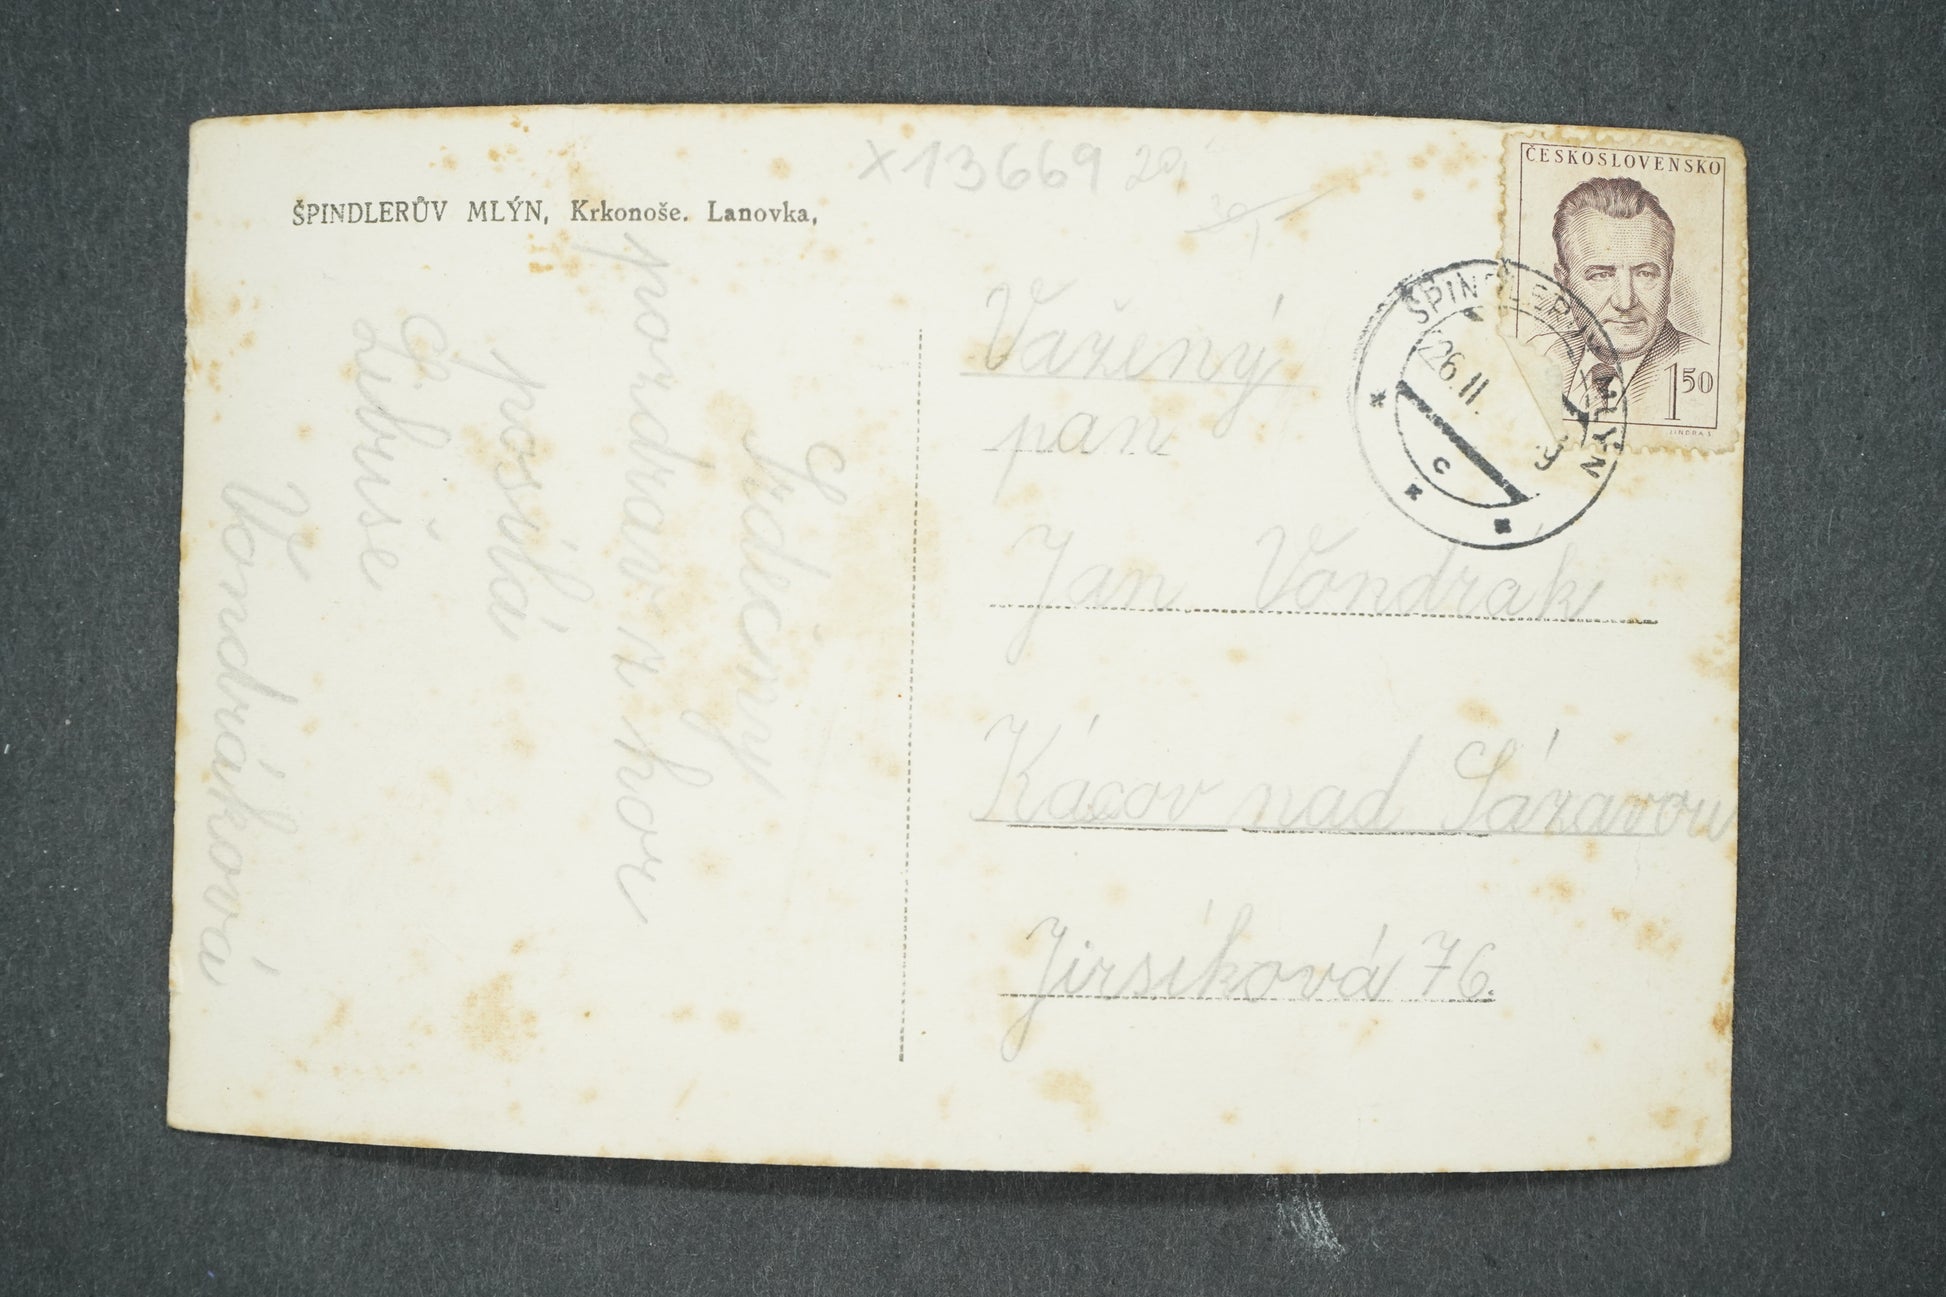 ŠPINDLERŮV MLÝN, Krkonoše. Lanovka,
x13669 20,
ČESKOSLOVENSKO
1 50
JINDRA S.
ŠPINDLERŮV MLÝN
26. II.
9
c
Srdečný
pozdrav z hor
posílá
Libuše
Vondráková
Vážený
pan
Jan Vondrák
Kácov nad Sázavou
Jirsíková 76.